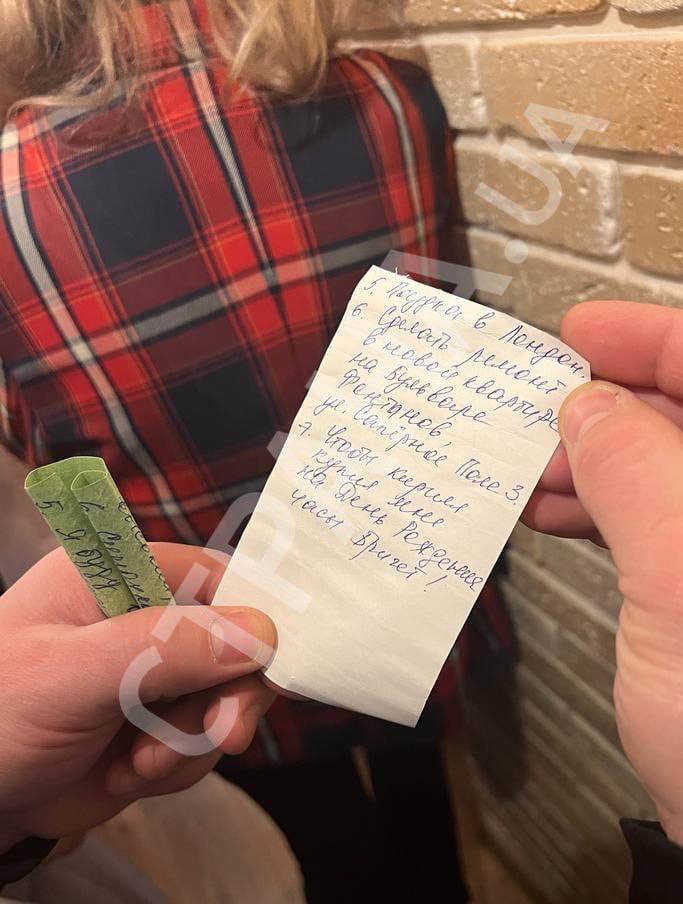 5. Поездка в Лондон.
6. Сделать ремонт
в новой квартире
на Бульваре
Фонтанов
ул. Сапёрное Поле 3.
7. Чтобы Кирилл
купил мне
на День Рождения
часы Бригет!
5. Я
6.
СТРАНА.UA